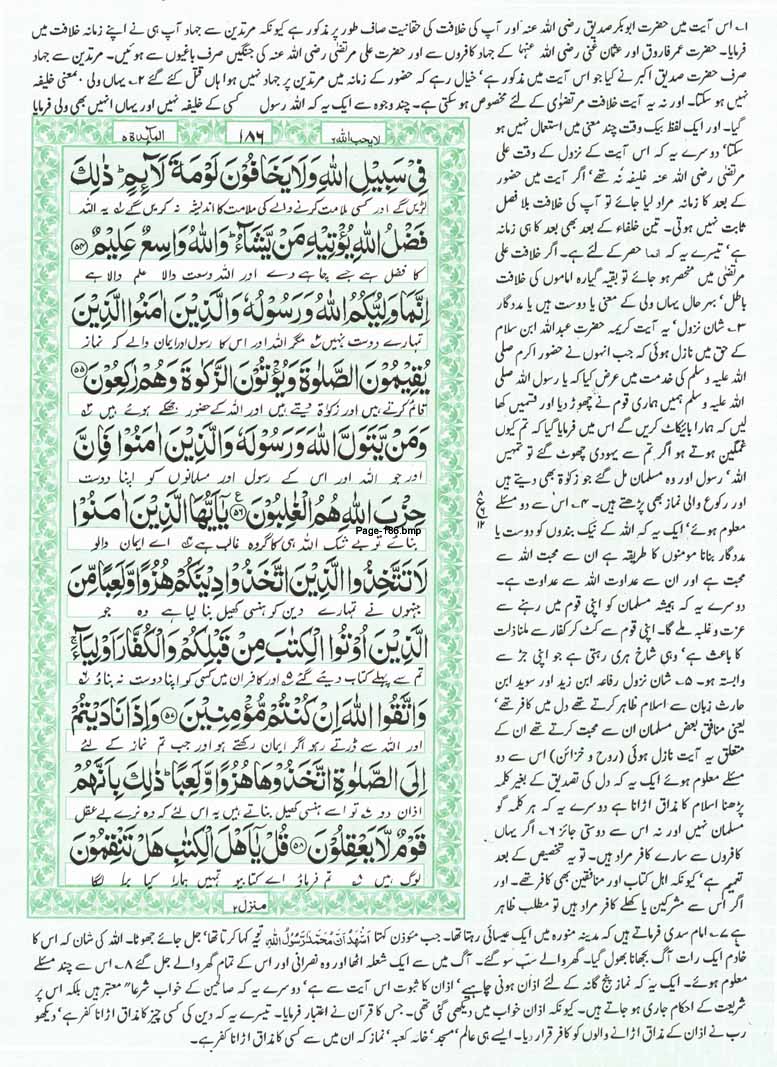 ۱۔ اس آیت میں حضرت ابوبکر صدیق رضی اللہ عنہ اور آپ کی خلافت کی حقانیت صاف طور پر مذکور ہے کیونکہ مرتدین سے جہاد آپ ہی نے اپنے زمانہ خلافت میں
فرمایا۔ حضرت عمر فاروق اور عثمان غنی رضی اللہ عنہما کے جہاد کافروں سے اور حضرت علی مرتضیٰ رضی اللہ عنہ کی جنگیں صرف باغیوں سے ہوئیں۔ مرتدین سے جہاد
صرف حضرت صدیق اکبر نے کیا جو اس آیت میں مذکور ہے، خیال رہے کہ حضور کے زمانہ میں مرتدین پر جہاد نہیں ہوا ہاں قتل کئے گئے ۲۔ یہاں ولی بمعنی خلیفہ
نہیں ہو سکتا۔ اور نہ یہ آیت خلافت مرتضوی کے لئے مخصوص ہو سکتی ہے۔ چند وجوہ سے ایک یہ کہ اللہ رسول کسی کے خلیفہ نہیں اور یہاں انہیں بھی ولی فرمایا
گیا۔ اور ایک لفظ بیک وقت چند معنی میں استعمال نہیں ہو
سکتا، دوسرے یہ کہ اس آیت کے نزول کے وقت علی
مرتضیٰ رضی اللہ عنہ خلیفہ نہ تھے، اگر آیت میں حضور
کے بعد کا زمانہ مراد لیا جائے تو آپ کی خلافت بلا فصل
ثابت نہیں ہوتی۔ تین خلفاء کے بعد بھی بعد کا ہی زمانہ
ہے، تیسرے یہ کہ انما حصر کے لئے ہے۔ اگر خلافت علی
مرتضیٰ میں منحصر ہو جائے تو بقیہ گیارہ اماموں کی خلافت
باطل، بہر حال یہاں ولی کے معنی یا دوست ہیں یا مددگار
۳۔ شان نزول، یہ آیت کریمہ حضرت عبداللہ ابن سلام
کے حق میں نازل ہوئی کہ جب انہوں نے حضور اکرم صلی
اللہ علیہ وسلم کی خدمت میں عرض کیا کہ یا رسول اللہ صلی
اللہ علیہ وسلم ہمیں ہماری قوم نے چھوڑ دیا اور قسمیں کھا
لیں کہ ہمارا بائیکاٹ کریں گے اس میں فرمایا گیا کہ تم کیوں
غمگین ہوتے ہو اگر تم سے یہودی چھوٹ گئے تو تمہیں
اللہ، رسول اور وہ مسلمان مل گئے جو زکوٰۃ بھی دیتے ہیں
اور رکوع والی نماز بھی پڑھتے ہیں۔ ۴۔ اس سے دو مسئلے
معلوم ہوئے، ایک یہ کہ اللہ کے نیک بندوں کو دوست یا
مددگار بنانا مومنوں کا طریقہ ہے ان سے محبت اللہ سے
محبت ہے اور ان سے عداوت اللہ سے عداوت ہے۔
دوسرے یہ کہ ہمیشہ مسلمان کو اپنی قوم میں رہنے سے
عزت و غلبہ ملے گا۔ اپنی قوم سے کٹ کر کفار سے ملنا ذلت
کا باعث ہے، وہی شاخ ہری رہتی ہے جو اپنی جڑ سے
وابستہ ہو۔ ۵۔ شان نزول رفاعہ ابن زید اور سوید ابن
حارث زبان سے اسلام ظاہر کرتے تھے دل میں کافر تھے،
یعنی منافق بعض مسلمان ان سے محبت کرتے تھے ان کے
متعلق یہ آیت نازل ہوئی (روح و خزائن) اس سے دو
مسئلے معلوم ہوئے ایک یہ کہ دل کی تصدیق کے بغیر کلمہ
پڑھنا اسلام کا مذاق اڑانا ہے دوسرے یہ کہ ہر کلمہ گو
مسلمان نہیں اور نہ اس سے دوستی جائز ۶۔ اگر یہاں
کافروں سے سارے کافر مراد ہیں۔ تو یہ تخصیص کے بعد
تعمیم ہے، کیونکہ اہل کتاب اور منافقین بھی کافر تھے۔ اور
اگر اس سے مشرکین یا کھلے کافر مراد ہیں تو مطلب ظاہر
لا یحب اللہ ۶
۱۸۶
المآئدۃ ۵
فِیۡ سَبِیۡلِ اللہِ وَلَا یَخَافُوۡنَ لَوۡمَۃَ لَآئِمٍ ؕ ذٰلِکَ
لڑیں گے اور کسی ملامت کرنے والے کی ملامت کا اندیشہ نہ کریں گے یہ اللہ
فَضۡلُ اللہِ یُؤۡتِیۡہِ مَنۡ یَّشَآءُ ؕ وَاللہُ وَاسِعٌ عَلِیۡمٌ ﴿۵۴﴾
کا فضل ہے جسے چاہے دے اور اللہ وسعت والا علم والا ہے
اِنَّمَا وَلِیُّکُمُ اللہُ وَرَسُوۡلُہٗ وَالَّذِیۡنَ اٰمَنُوا الَّذِیۡنَ
تمہارے دوست نہیں مگر اللہ اور اس کا رسول اور ایمان والے کہ نماز
یُقِیۡمُوۡنَ الصَّلٰوۃَ وَیُؤۡتُوۡنَ الزَّکٰوۃَ وَہُمۡ رٰکِعُوۡنَ ﴿۵۵﴾
قائم کرتے ہیں اور زکوٰۃ دیتے ہیں اور اللہ کے حضور جھکے ہوئے ہیں
وَمَنۡ یَّتَوَلَّ اللہَ وَرَسُوۡلَہٗ وَالَّذِیۡنَ اٰمَنُوۡا فَاِنَّ
اور جو اللہ اور اس کے رسول اور مسلمانوں کو اپنا دوست
حِزۡبَ اللہِ ہُمُ الۡغٰلِبُوۡنَ ﴿۵۶﴾ یٰۤاَیُّہَا الَّذِیۡنَ اٰمَنُوۡا
Page-186.bmp
بنائے تو بے شک اللہ ہی کا گروہ غالب ہے اے ایمان والو
لَا تَتَّخِذُوا الَّذِیۡنَ اتَّخَذُوۡا دِیۡنَکُمۡ ہُزُوًا وَّلَعِبًا مِّنَ
جنہوں نے تمہارے دین کو ہنسی کھیل بنا لیا ہے وہ جو
الَّذِیۡنَ اُوۡتُوا الۡکِتٰبَ مِنۡ قَبۡلِکُمۡ وَالۡکُفَّارَ اَوۡلِیَآءَ ۚ
تم سے پہلے کتاب دیئے گئے اور کافر ان میں کسی کو اپنا دوست نہ بناؤ
وَاتَّقُوا اللہَ اِنۡ کُنۡتُمۡ مُّؤۡمِنِیۡنَ ﴿۵۷﴾ وَاِذَا نَادَیۡتُمۡ
اور اللہ سے ڈرتے رہو اگر ایمان رکھتے ہو اور جب تم نماز کے لئے
اِلَی الصَّلٰوۃِ اتَّخَذُوۡہَا ہُزُوًا وَّلَعِبًا ؕ ذٰلِکَ بِاَنَّہُمۡ
اذان دو تو اسے ہنسی کھیل بناتے ہیں یہ اس لئے کہ وہ نرے بے عقل
قَوۡمٌ لَّا یَعۡقِلُوۡنَ ﴿۵۸﴾ قُلۡ یٰۤاَہۡلَ الۡکِتٰبِ ہَلۡ تَنۡقِمُوۡنَ
لوگ ہیں تم فرماؤ اے کتابیو تمہیں ہمارا کیا برا لگا
منزل ۲
ع
۱۲
ہے ۷۔ امام سدی فرماتے ہیں کہ مدینہ منورہ میں ایک عیسائی رہتا تھا۔ جب مئوذن کہتا اَشْهَدُ اَنَّ مُحَمَّدًا رَّسُوْلُ اللهِ تو کہا کرتا تھا، جل جائے جھوٹا۔ اللہ کی شان کہ اس کا
خادم ایک رات آگ بجھانا بھول گیا۔ گھر والے سب سو گئے۔ آگ میں سے ایک شعلہ اٹھا اور وہ نصرانی اور اس کے تمام گھر والے جل گئے ۸۔ اس سے چند مسئلے
معلوم ہوئے۔ ایک یہ کہ نماز پنج گانہ کے لئے اذان ہونی چاہیے، اذان کا ثبوت اس آیت سے ہے، دوسرے یہ کہ صالحین کے خواب شرعاً معتبر ہیں بلکہ اس پر
شریعت کے احکام جاری ہو جاتے ہیں۔ کیونکہ اذان خواب میں دیکھی گئی تھی۔ جس کا قرآن نے اعتبار فرمایا۔ تیسرے یہ کہ دین کی کسی چیز کا مذاق اڑانا کفر ہے، دیکھو
رب نے اذان کے مذاق اڑانے والوں کو کافر قرار دیا۔ ایسے ہی عالم، مسجد، خانہ کعبہ، نماز کہ ان میں سے کسی کا مذاق اڑانا کفر ہے۔